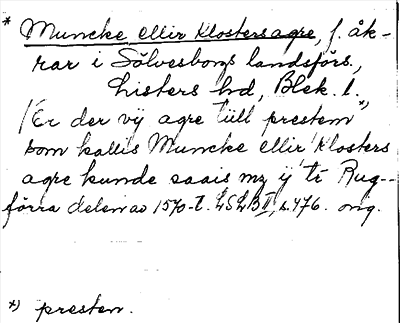 * Muncke ellir Klostersagre, f. åk-
rar i Sölvesborgs landsförs.,
Listers hd, Blek. l.
/Er der vÿ agre tüll prestem*)
som kallis Muncke ellir Klosters
agre kunde saais mz ÿ tr Rug--
förra delen av 1570-t. LSLB II, s. 476. orig.
*) presten.